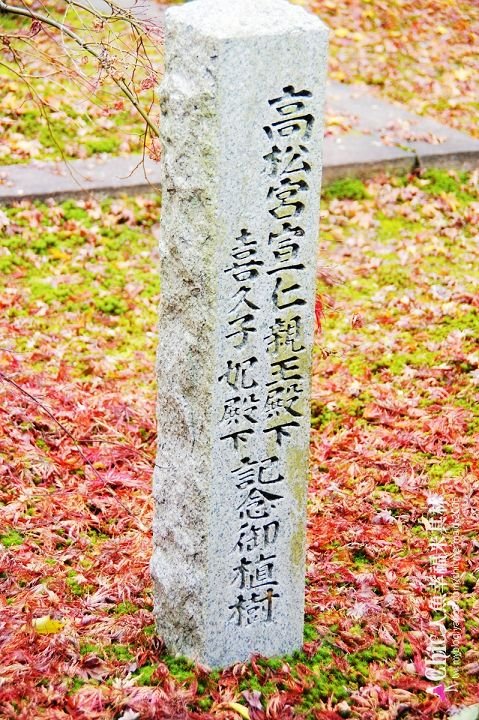 高松宮宣仁親王殿下
喜久子妃殿下
記念御植樹